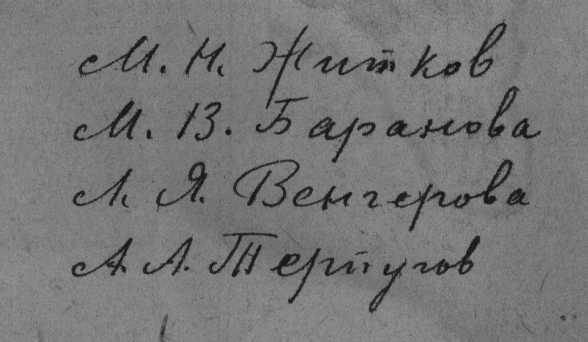 М. Н. Житков
М. В. Баранова
Л. Я. Венгерова
А. Л. Терпугов